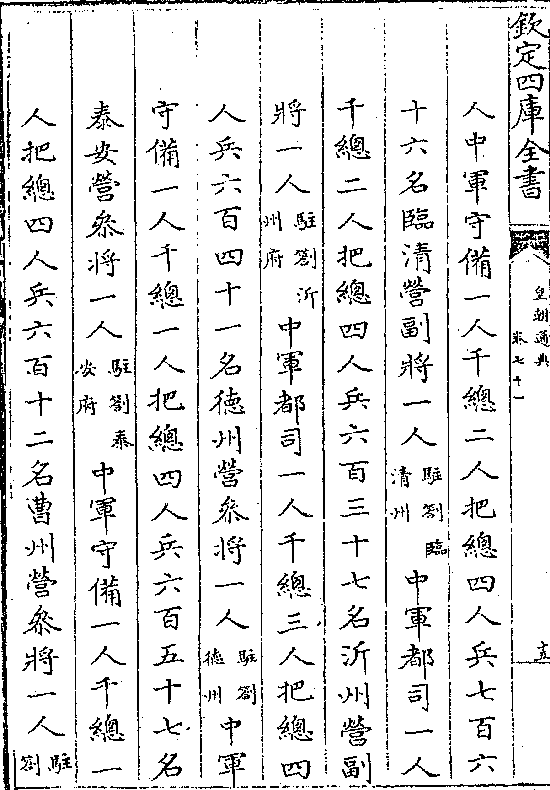 欽定四庫全書
皇朝通典
卷七十一
十五
人中軍守備一人千總二人把總四人兵七百六
十六名臨清營副將一人駐劄臨清州中軍都司一人
千總二人把總四人兵六百三十七名沂州營副
將一人駐劄沂州府中軍都司一人千總三人把總四
人兵六百四十一名德州營叅將一人駐劄德州中軍
守備一人千總一人把總四人兵六百五十七名
泰安營叅將一人駐劄泰安府中軍守備一人千總一
人把總四人兵六百十二名曹州營叅將一人駐劄